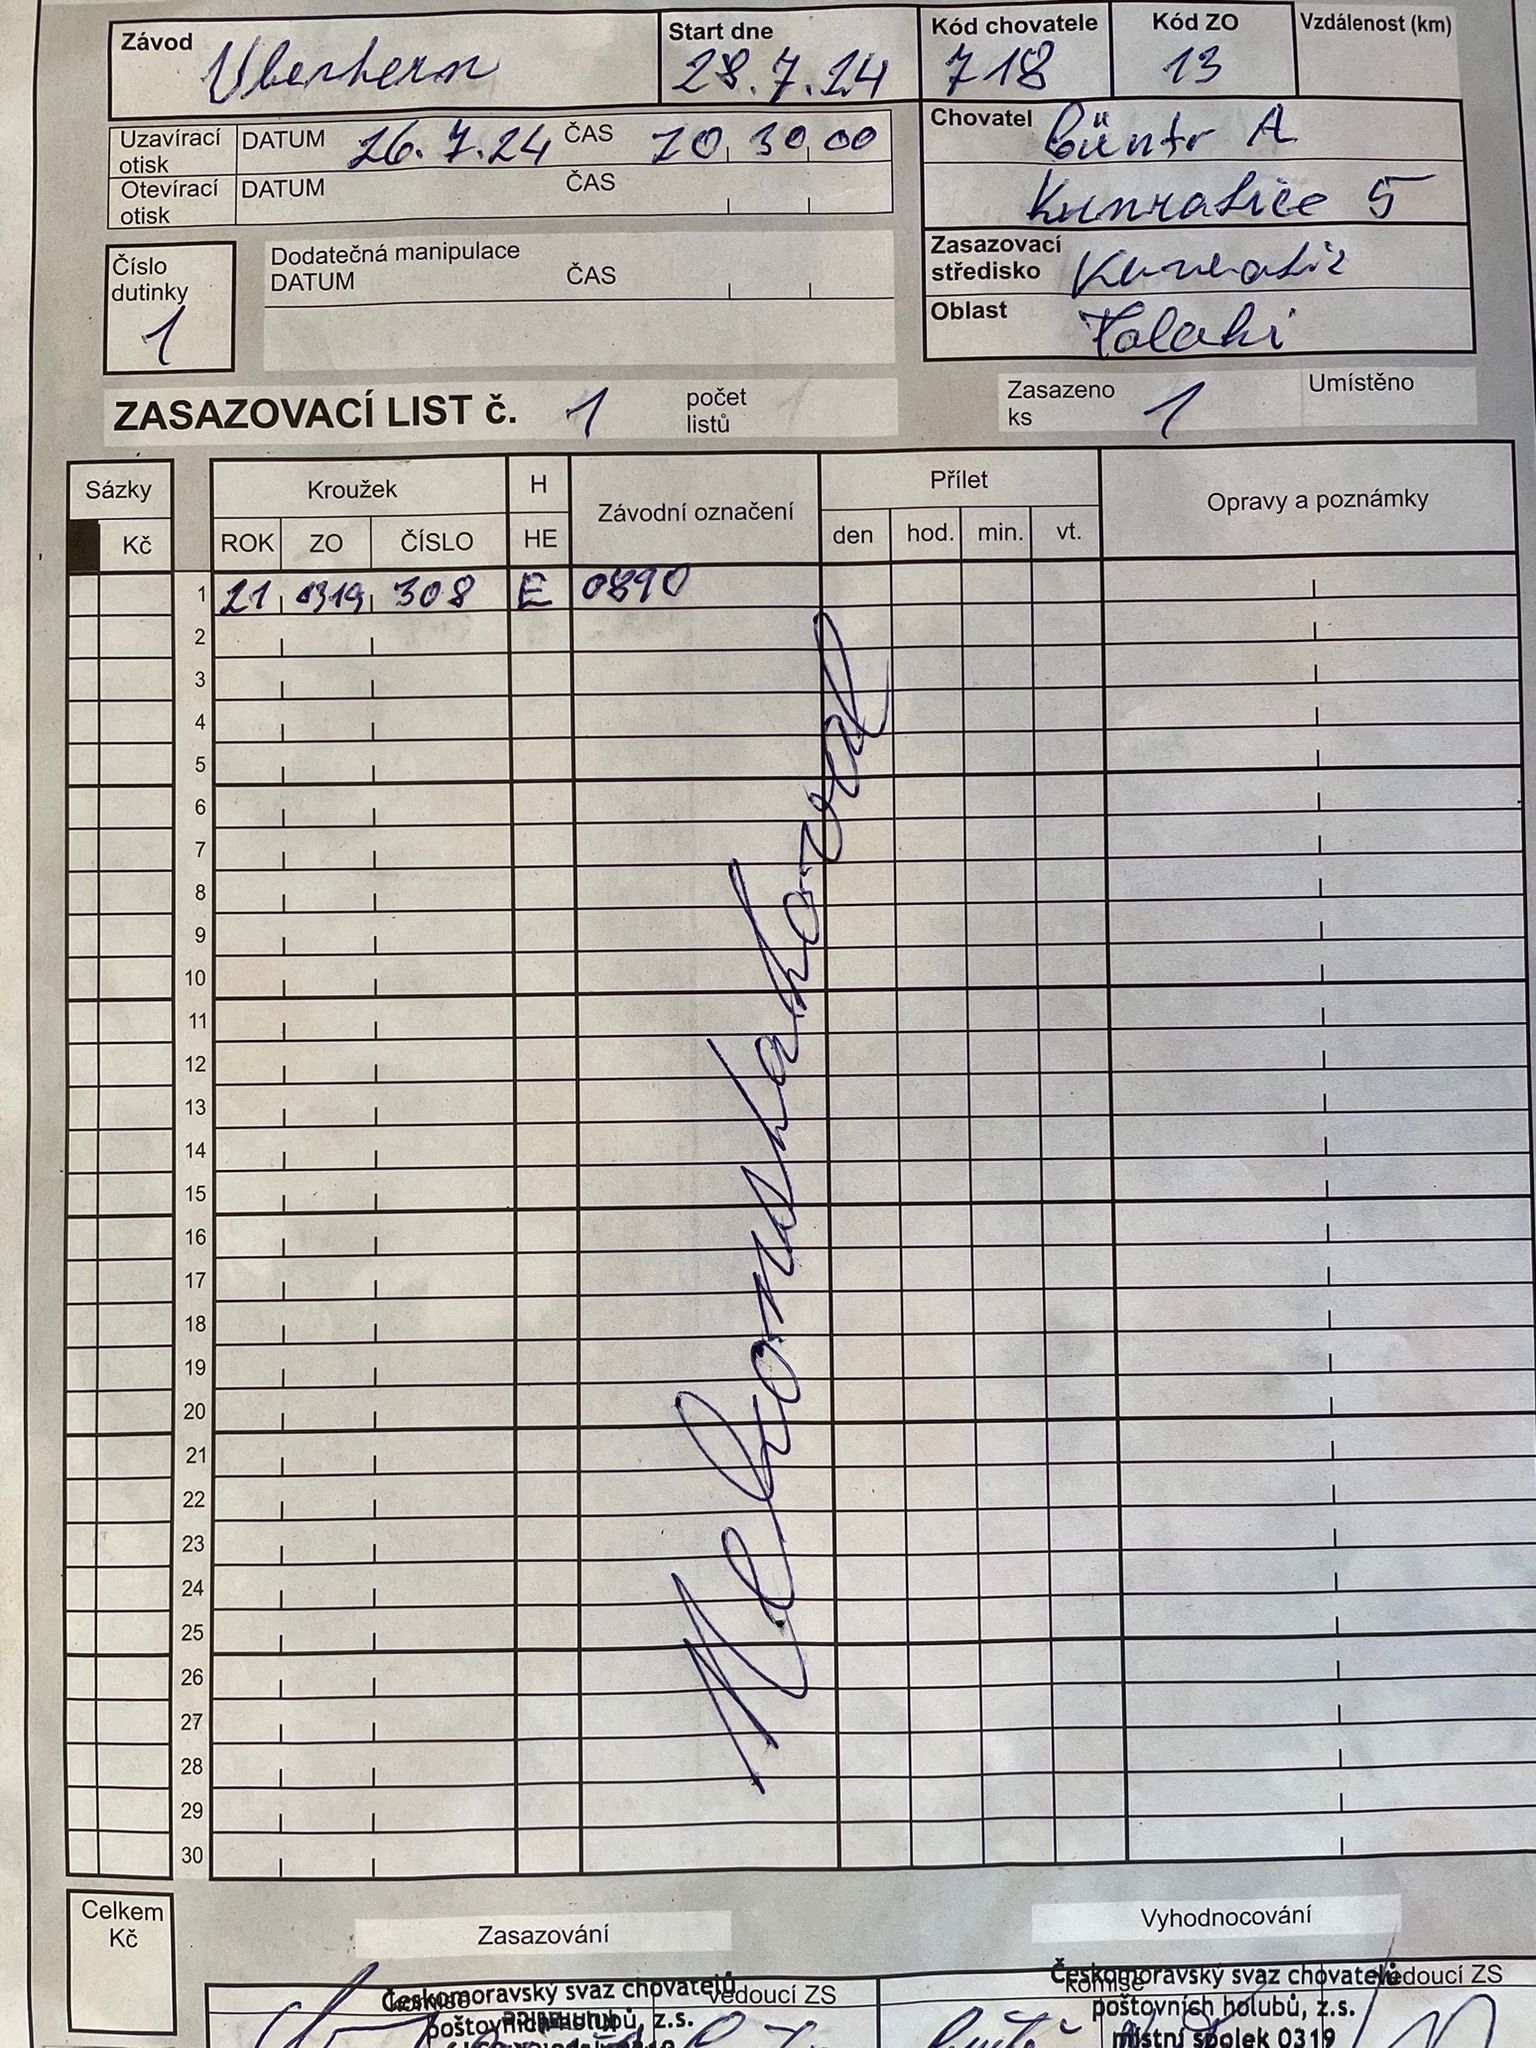 Závod Start dne Kód chovatele Kód ZO Vzdálenost (km)
28.7.24 718 13
Uzavírací otisk DATUM 26.7.24 ČAS 30 00
Otevírací otisk DATUM ČAS
Chovatel Güntr A
Kunratice 5
Číslo dutinky 1
Dodatečná manipulace
DATUM ČAS
Zasazovací středisko
Oblast
ZASAZOVACÍ LIST č. 1 počet listů Zasazeno ks 1 Umístěno
Sázky Kroužek H Závodní označení Přílet Opravy a poznámky
Kč ROK ZO ČÍSLO HE den hod. min. vt.
1 21 0319 308 E 0890
2
3
4
5
6
7
8
9
10
11
12
13
14
15
16
17
18
19
20
21
22
23
24
25
26
27
28
29
30
Celkem Kč
Zasazování Vyhodnocování
komise vedoucí ZS komise vedoucí ZS
Českomoravský svaz chovatelů Českomoravský svaz chovatelů
poštovních holubů, z.s. poštovních holubů, z.s.
místní spolek 0319